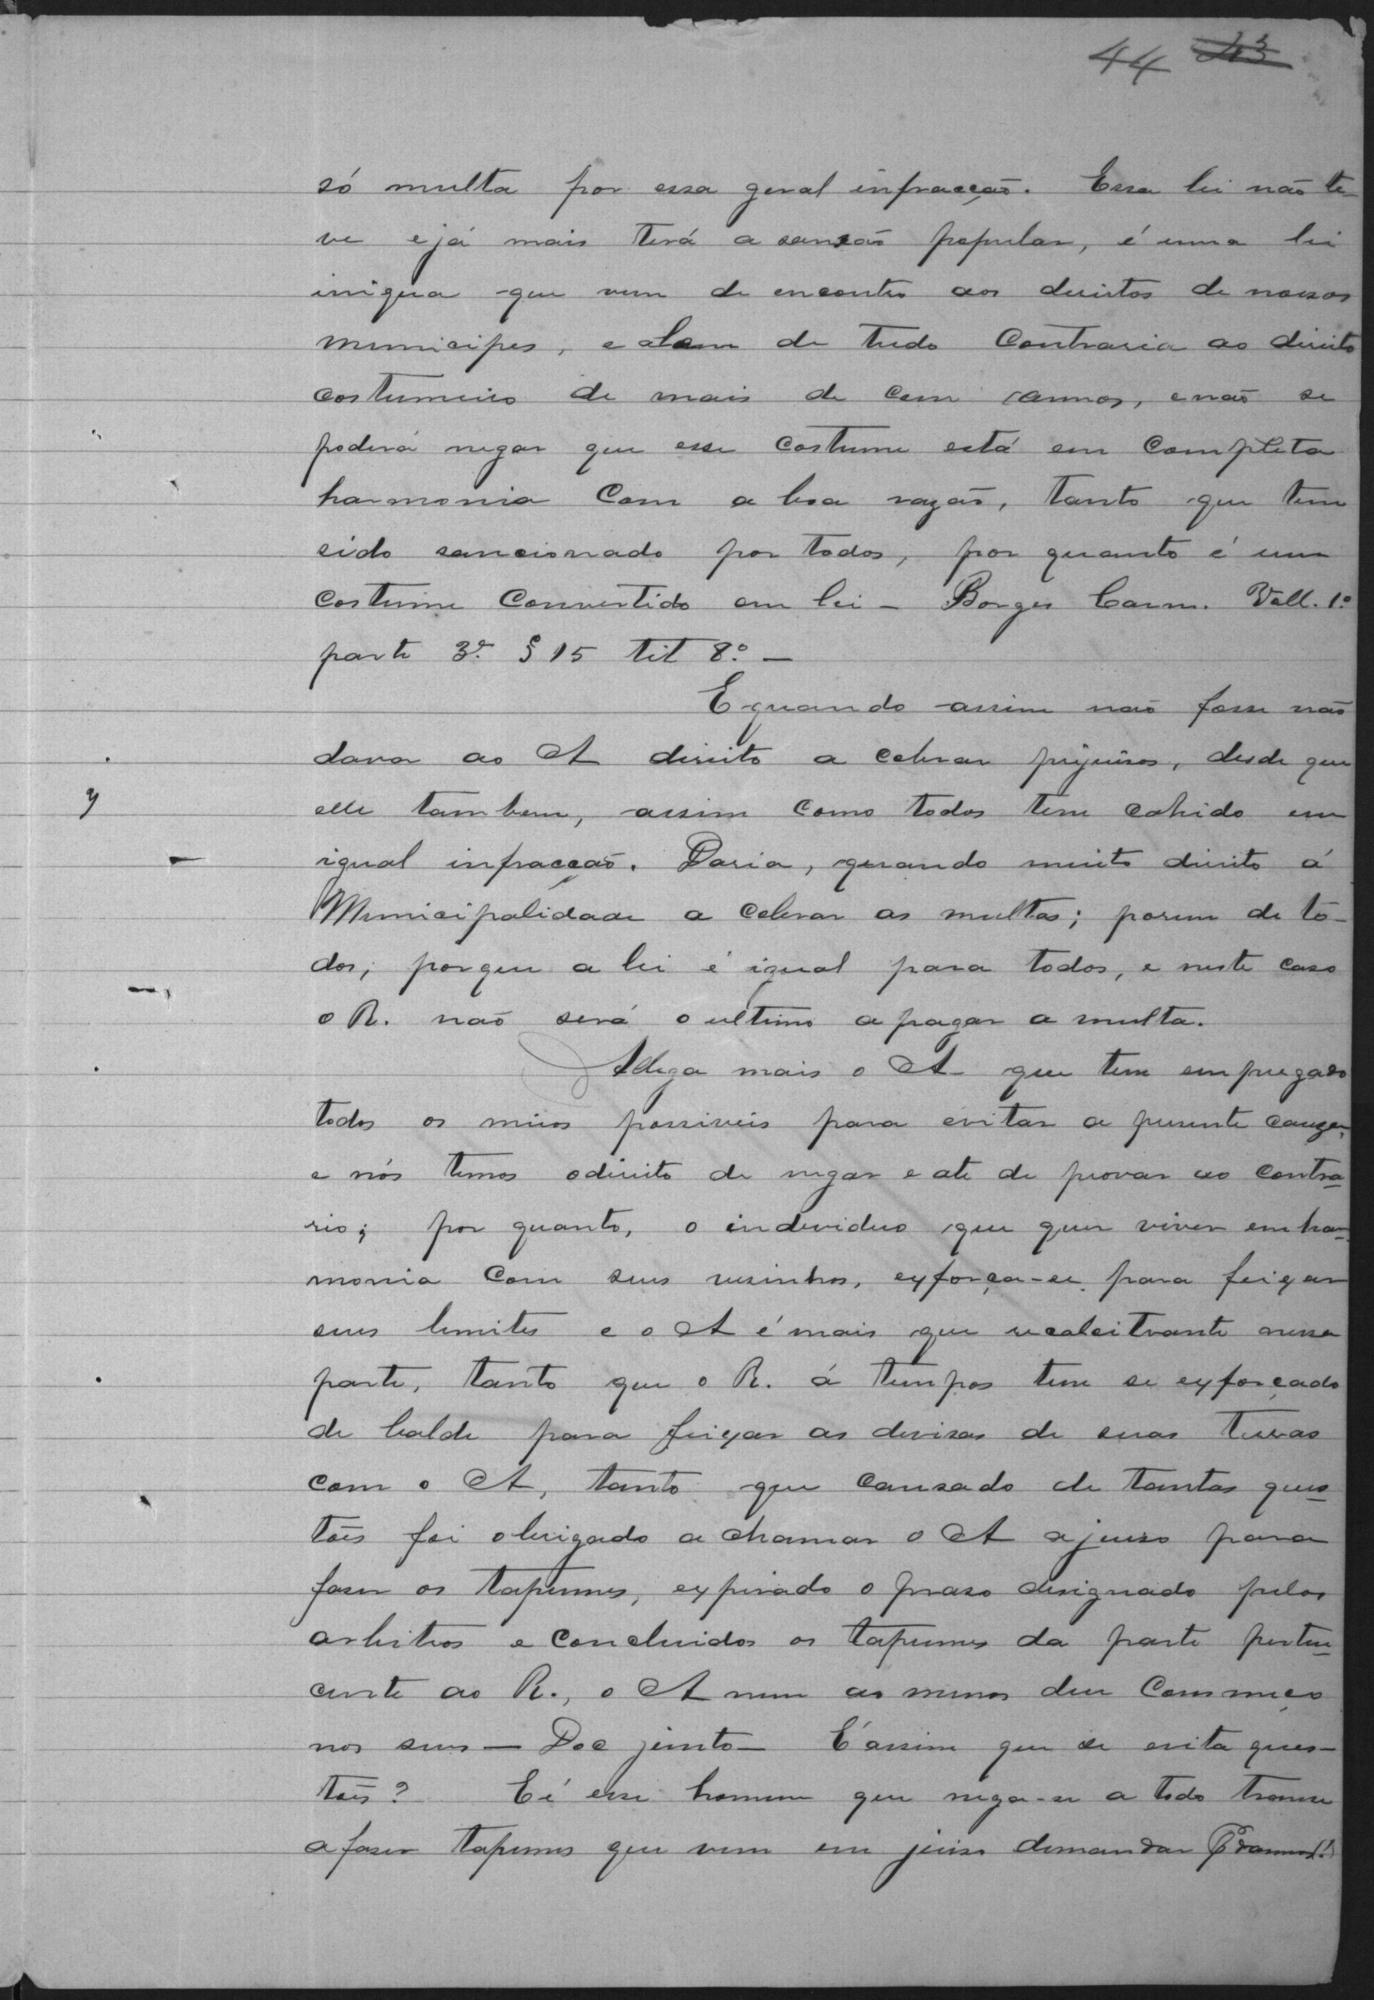 44 43
só multa por essa geral infracção. Essa lei não te-
ve e já mais terá a sansão popular, é uma lei
iniqua que vem de encontro aos direitos de nossos
municipes, e alem de tudo contraria ao direito
costumeiro de mais de cem annos, e não se
poderá negar que esse costume está em completa
harmonia com a boa razão, tanto que tem
sido sancionado por todos, por quanto é um
costume convertido em lei - Borges Carm. Voll. 1º
parte 3ª § 15 tit 8º -
E quando assim não fosse não
dava ao A direito a cobrar prijuisos, desde que
elle tambem, assim como todos tem cahido em
igual infracção. Daria, quando muito direito á
Municipalidade a cobrar as multas; porem de to-
dos, porque a lei é igual para todos, e neste caso
o R. não será o ultimo a pagar a multa.
Allega mais o A que tem empregado
todos os meios possiveis para evitar a presente cauza,
e nós temos o direito de negar e até de provar ao contra-
rio; por quanto, o individuo que quer viver em har-
monia com seus visinhos, exforça-se para feixar
seus limites e o A é mais que recalcitrante nessa
parte, tanto que o R. á tempos tem se exforçado
de balde para feixar as devisas de suas terras
com o A, tanto que cansado de tantas ques-
tões foi obrigado a chamar o A a juiso para
faser os tapumes, expirado o praso designado pelos
arbitros e concluidos os tapumes da parte perten-
cente ao R., o A nem ao menos deu commeço
nos seus - Doc junto - É assim que se evita ques-
tões? E é esse homem que nega-se a todo transe
a faser tapumes que vem em juiso demandar damnos!